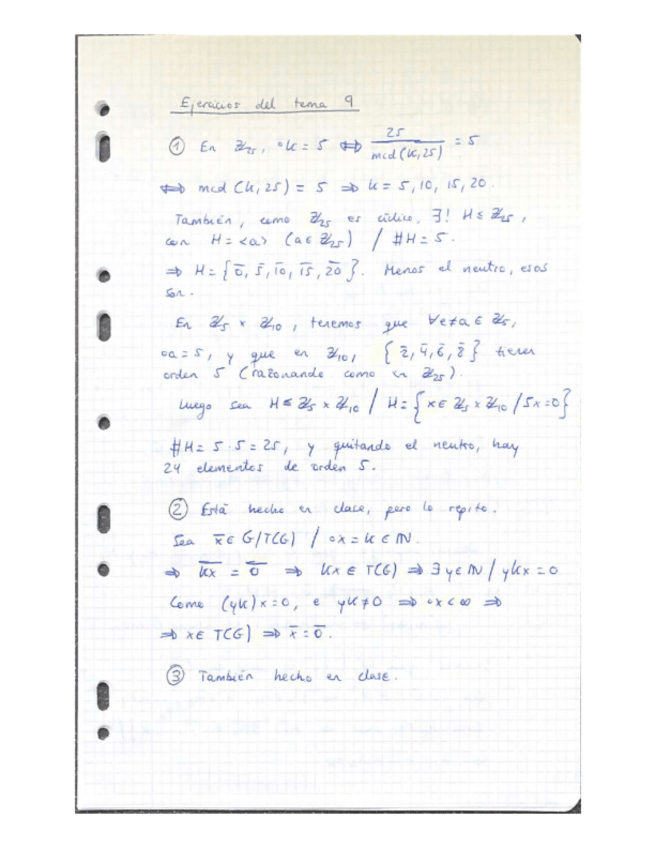 Ejercicios del tema 9
① En ℤ₂₅, ok = 5 ⇔ 25/mcd(k,25) = 5
⇔ mcd (k, 25) = 5 ⇒ k = 5, 10, 15, 20.
También, como ℤ₂₅ es cíclico, ∃! H ≤ ℤ₂₅,
con H = <a> (a ∈ ℤ₂₅) / #H = 5.
⇒ H = {0̄, 5̄, 1̄0̄, 1̄5̄, 2̄0̄}. Menos el neutro, esos
son.
En ℤ₅ x ℤ₁₀, tenemos que ∀e≠a ∈ ℤ₅,
oa = 5, y que en ℤ₁₀, {2̄, 4̄, 6̄, 8̄} tienen
orden 5 (razonando como en ℤ₂₅).
Luego sea H ≤ ℤ₅ x ℤ₁₀ / H = {x ∈ ℤ₅ x ℤ₁₀ / 5x = 0}
#H = 5·5 = 25, y quitando el neutro, hay
24 elementos de orden 5.
② Está hecho en clase, pero lo repito.
Sea x̄ ∈ G/T(G) / ox = k ∈ ℕ.
⇒ k̄x̄ = 0̄ ⇒ kx ∈ T(G) ⇒ ∃ y ∈ ℕ / ykx = 0
Como (yk)x = 0, e yk ≠ 0 ⇒ ox < ∞ ⇒
⇒ x ∈ T(G) ⇒ x̄ = 0̄.
③ También hecho en clase.